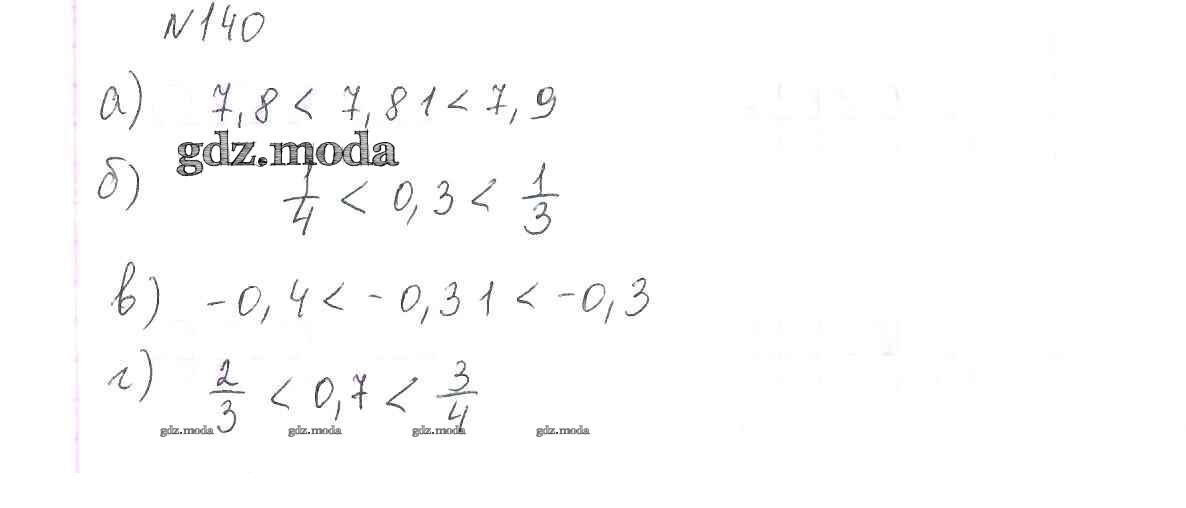 N140
а) 7,8 < 7,81 < 7,9
gdz.moda
б) 1/4 < 0,3 < 1/3
в) -0,4 < -0,31 < -0,3
г) 2/3 < 0,7 < 3/4
gdz.moda gdz.moda gdz.moda gdz.moda